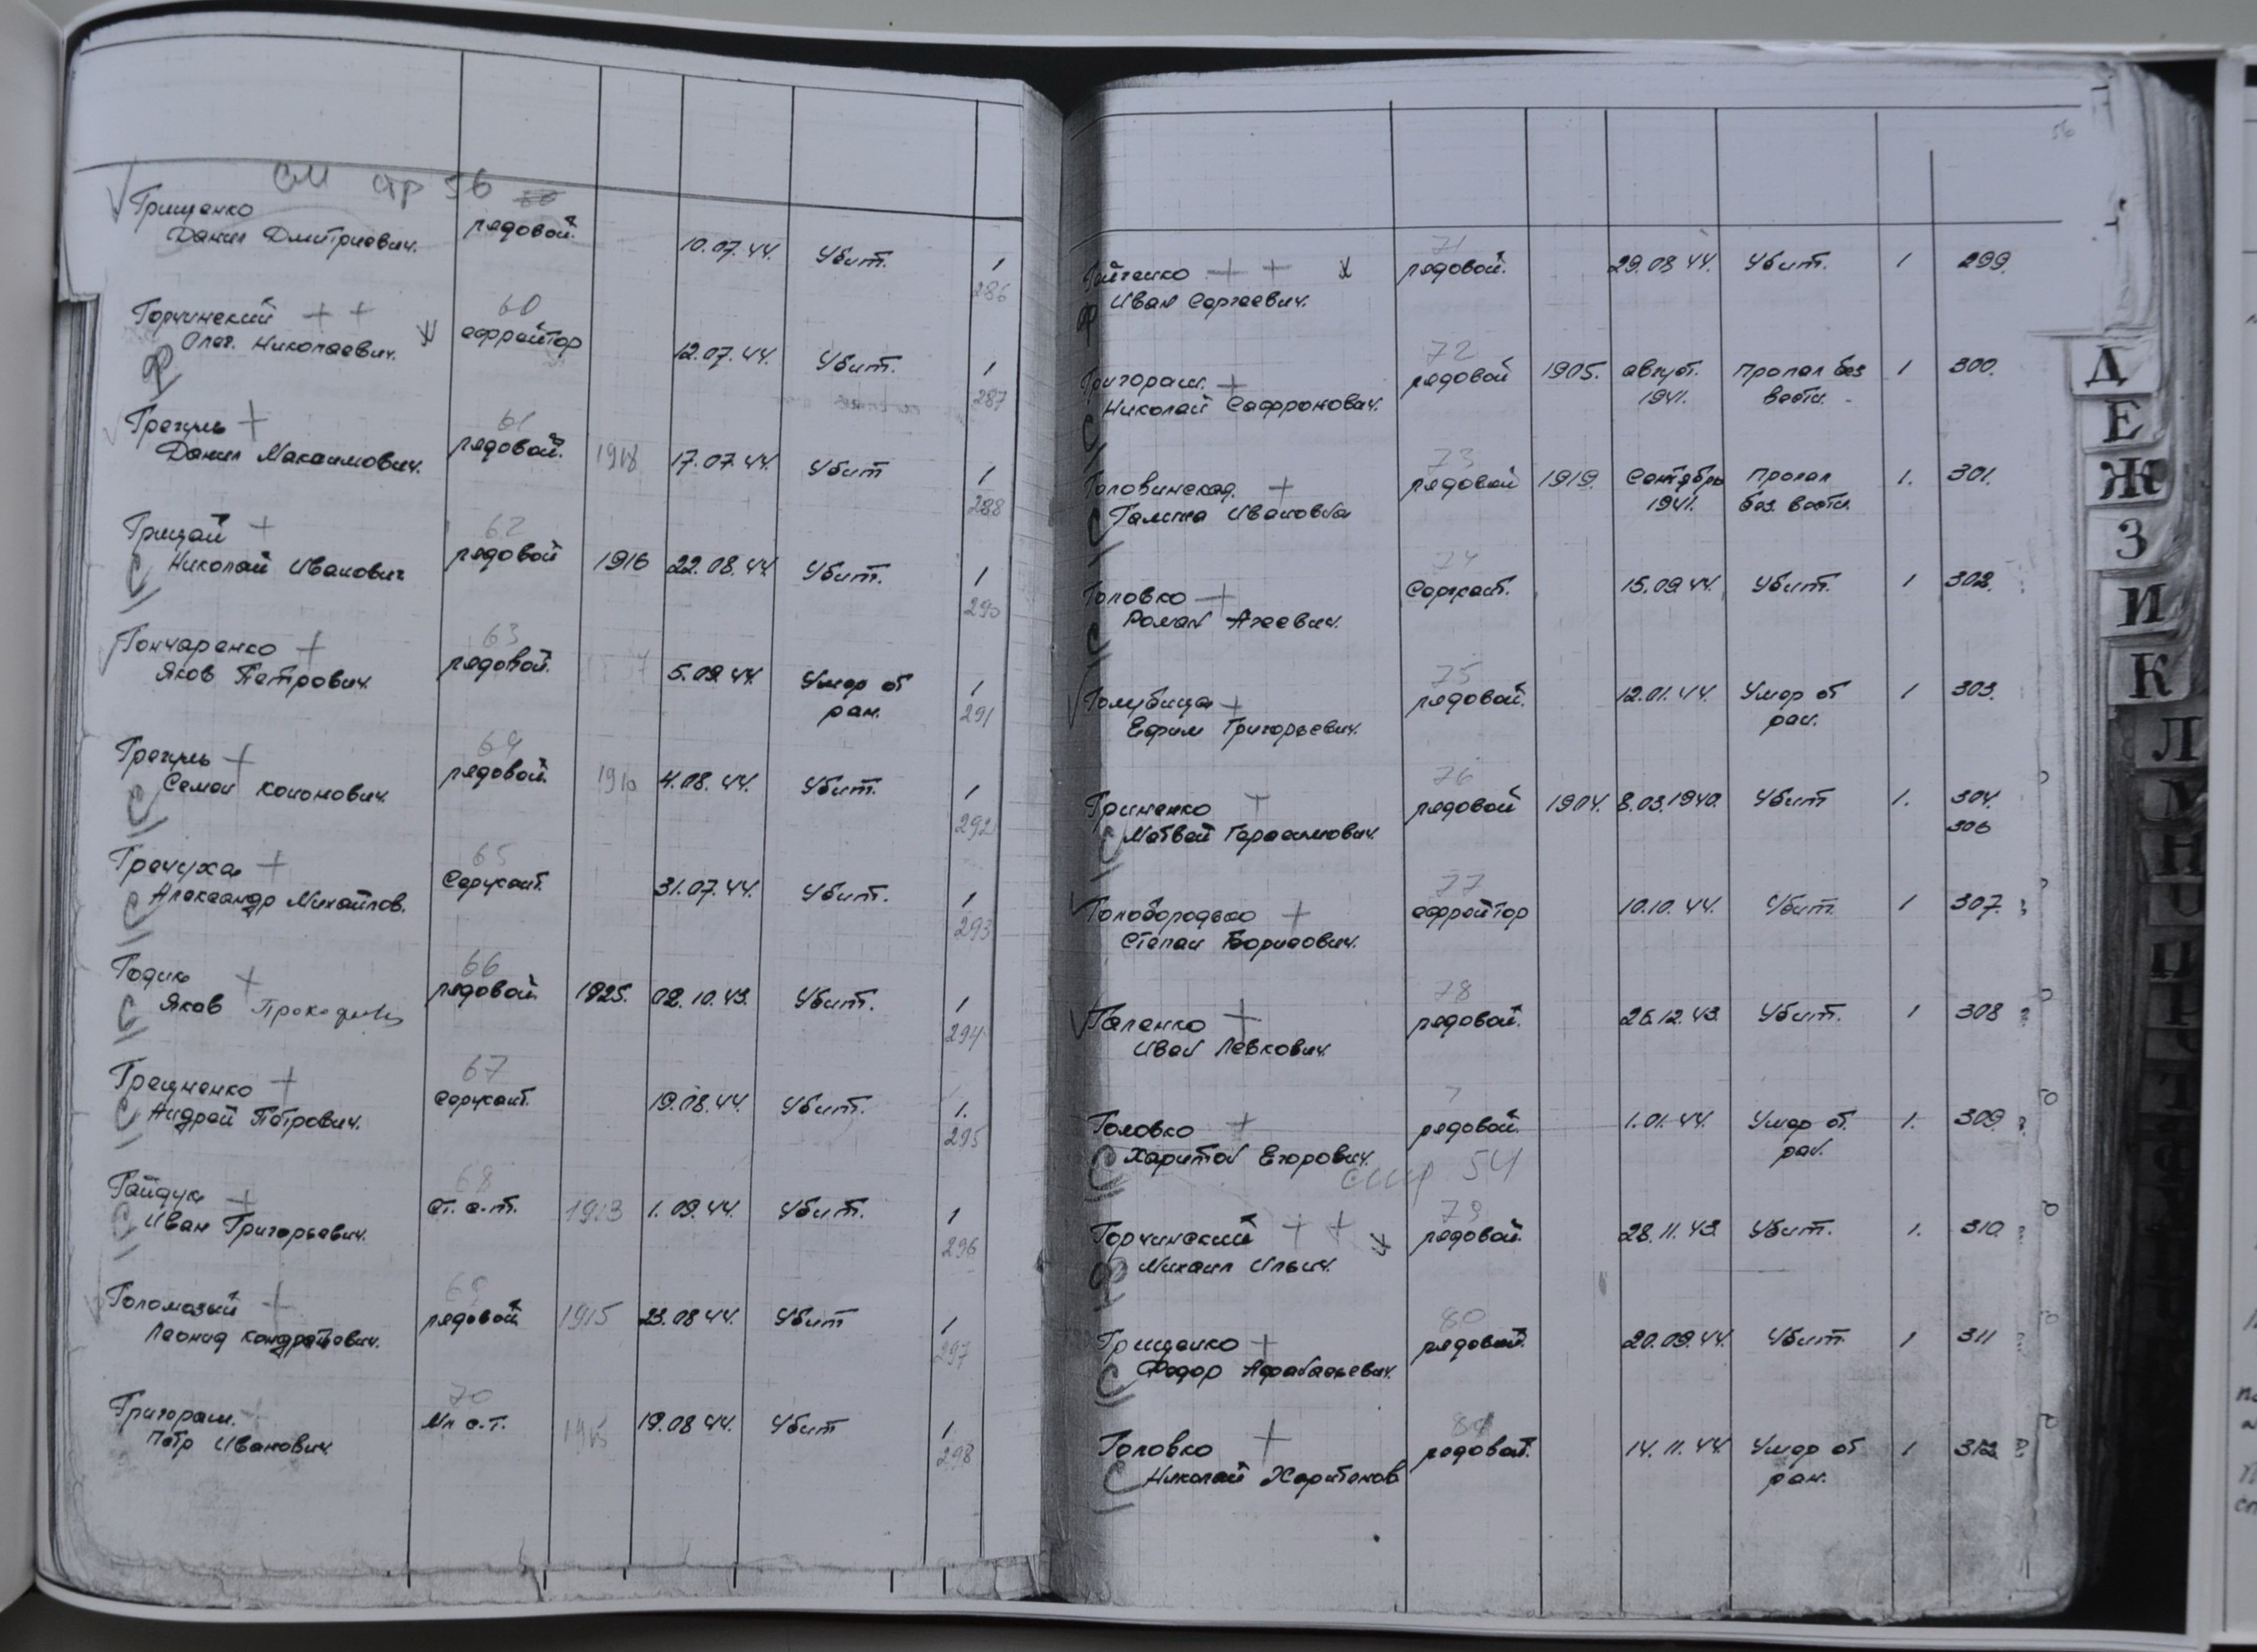 см стр 56
Грищенко
Данил Дмитриевич. рядовой. 10.07.44. Убит. 1
286
Горчинский + + 60
Олег. Николаевич. ефрейтор 12.07.44. Убит. 1
Ф 287
Грегуль + 61
Данил Максимович. рядовой. 1918 17.07.44. Убит 1
288
Грицай + 62
С Николай Иванович рядовой 1916 22.08.44. Убит. 1
290
Гончаренко + 63
Яков Петрович. рядовой. 5.09.44. Умер от 1
ран. 291
Грегуль + 64
С Семен Кононович. рядовой. 1910 4.08.44. Убит. 1
292
Гречуха + 65
С Александр Михайлов. Сержант. 31.07.44. Убит. 1
293
Годик + 66
С Яков рядовой 1925. 02.10.43. Убит. 1
294
Грещненко + 67
С Андрей Петрович. сержант. 19.08.44. Убит. 1.
295
Гайдук + 68
С Иван Григорьевич. ст. с-т. 1913 1.09.44. Убит. 1
296
Голомозый + 69
Леонид Кондратьевич. рядовой 1915 23.08.44. Убит 1
297
Григораш. + 70
Петр Иванович. Мл с.т. 19.08.44. Убит 1
298
56
71
Гайченко + + х рядовой. 29.08.44. Убит. 1 299.
Ф Иван Сергеевич.
72
Григораш. + рядовой 1905. август. Пропал без 1 300.
С Николай Сафронович. 1941. вести.
73
Головинская. + рядовой 1919. Сентябрь Пропал 1. 301.
С Галина Ивановна 1941. без вести.
74
Головко + Сержант. 15.09.44. Убит. 1 302.
С Роман Агеевич.
75
Голубица + рядовой. 12.01.44. Умер от 1 303.
Ефим Григорьевич. ран.
76
Гриненко + рядовой 1904. 8.03.1940. Убит 1. 304.
С Матвей Герасимович. 306
77
Голобородько + ефрейтор 10.10.44. Убит. 1 307.
Степан Борисович.
78
Галенко + рядовой. 26.12.43. Убит. 1 308
Иван Левкович.
Головко + рядовой. 1.01.44. Умер от. 1. 309.
С Харитон Егорович. ран.
стр 54
79
Горчинский + + рядовой. 28.11.43. Убит. 1. 310.
Ф Михаил Ильич.
80
Грищенко + рядовой. 20.09.44. Убит 1 311
С Федор Афанасьевич.
Головко + рядовой. 14.11.44 Умер от 1 312
С Николай Харитонов ран.
Д
Е
Ж
З
И
К
Л
М
Н